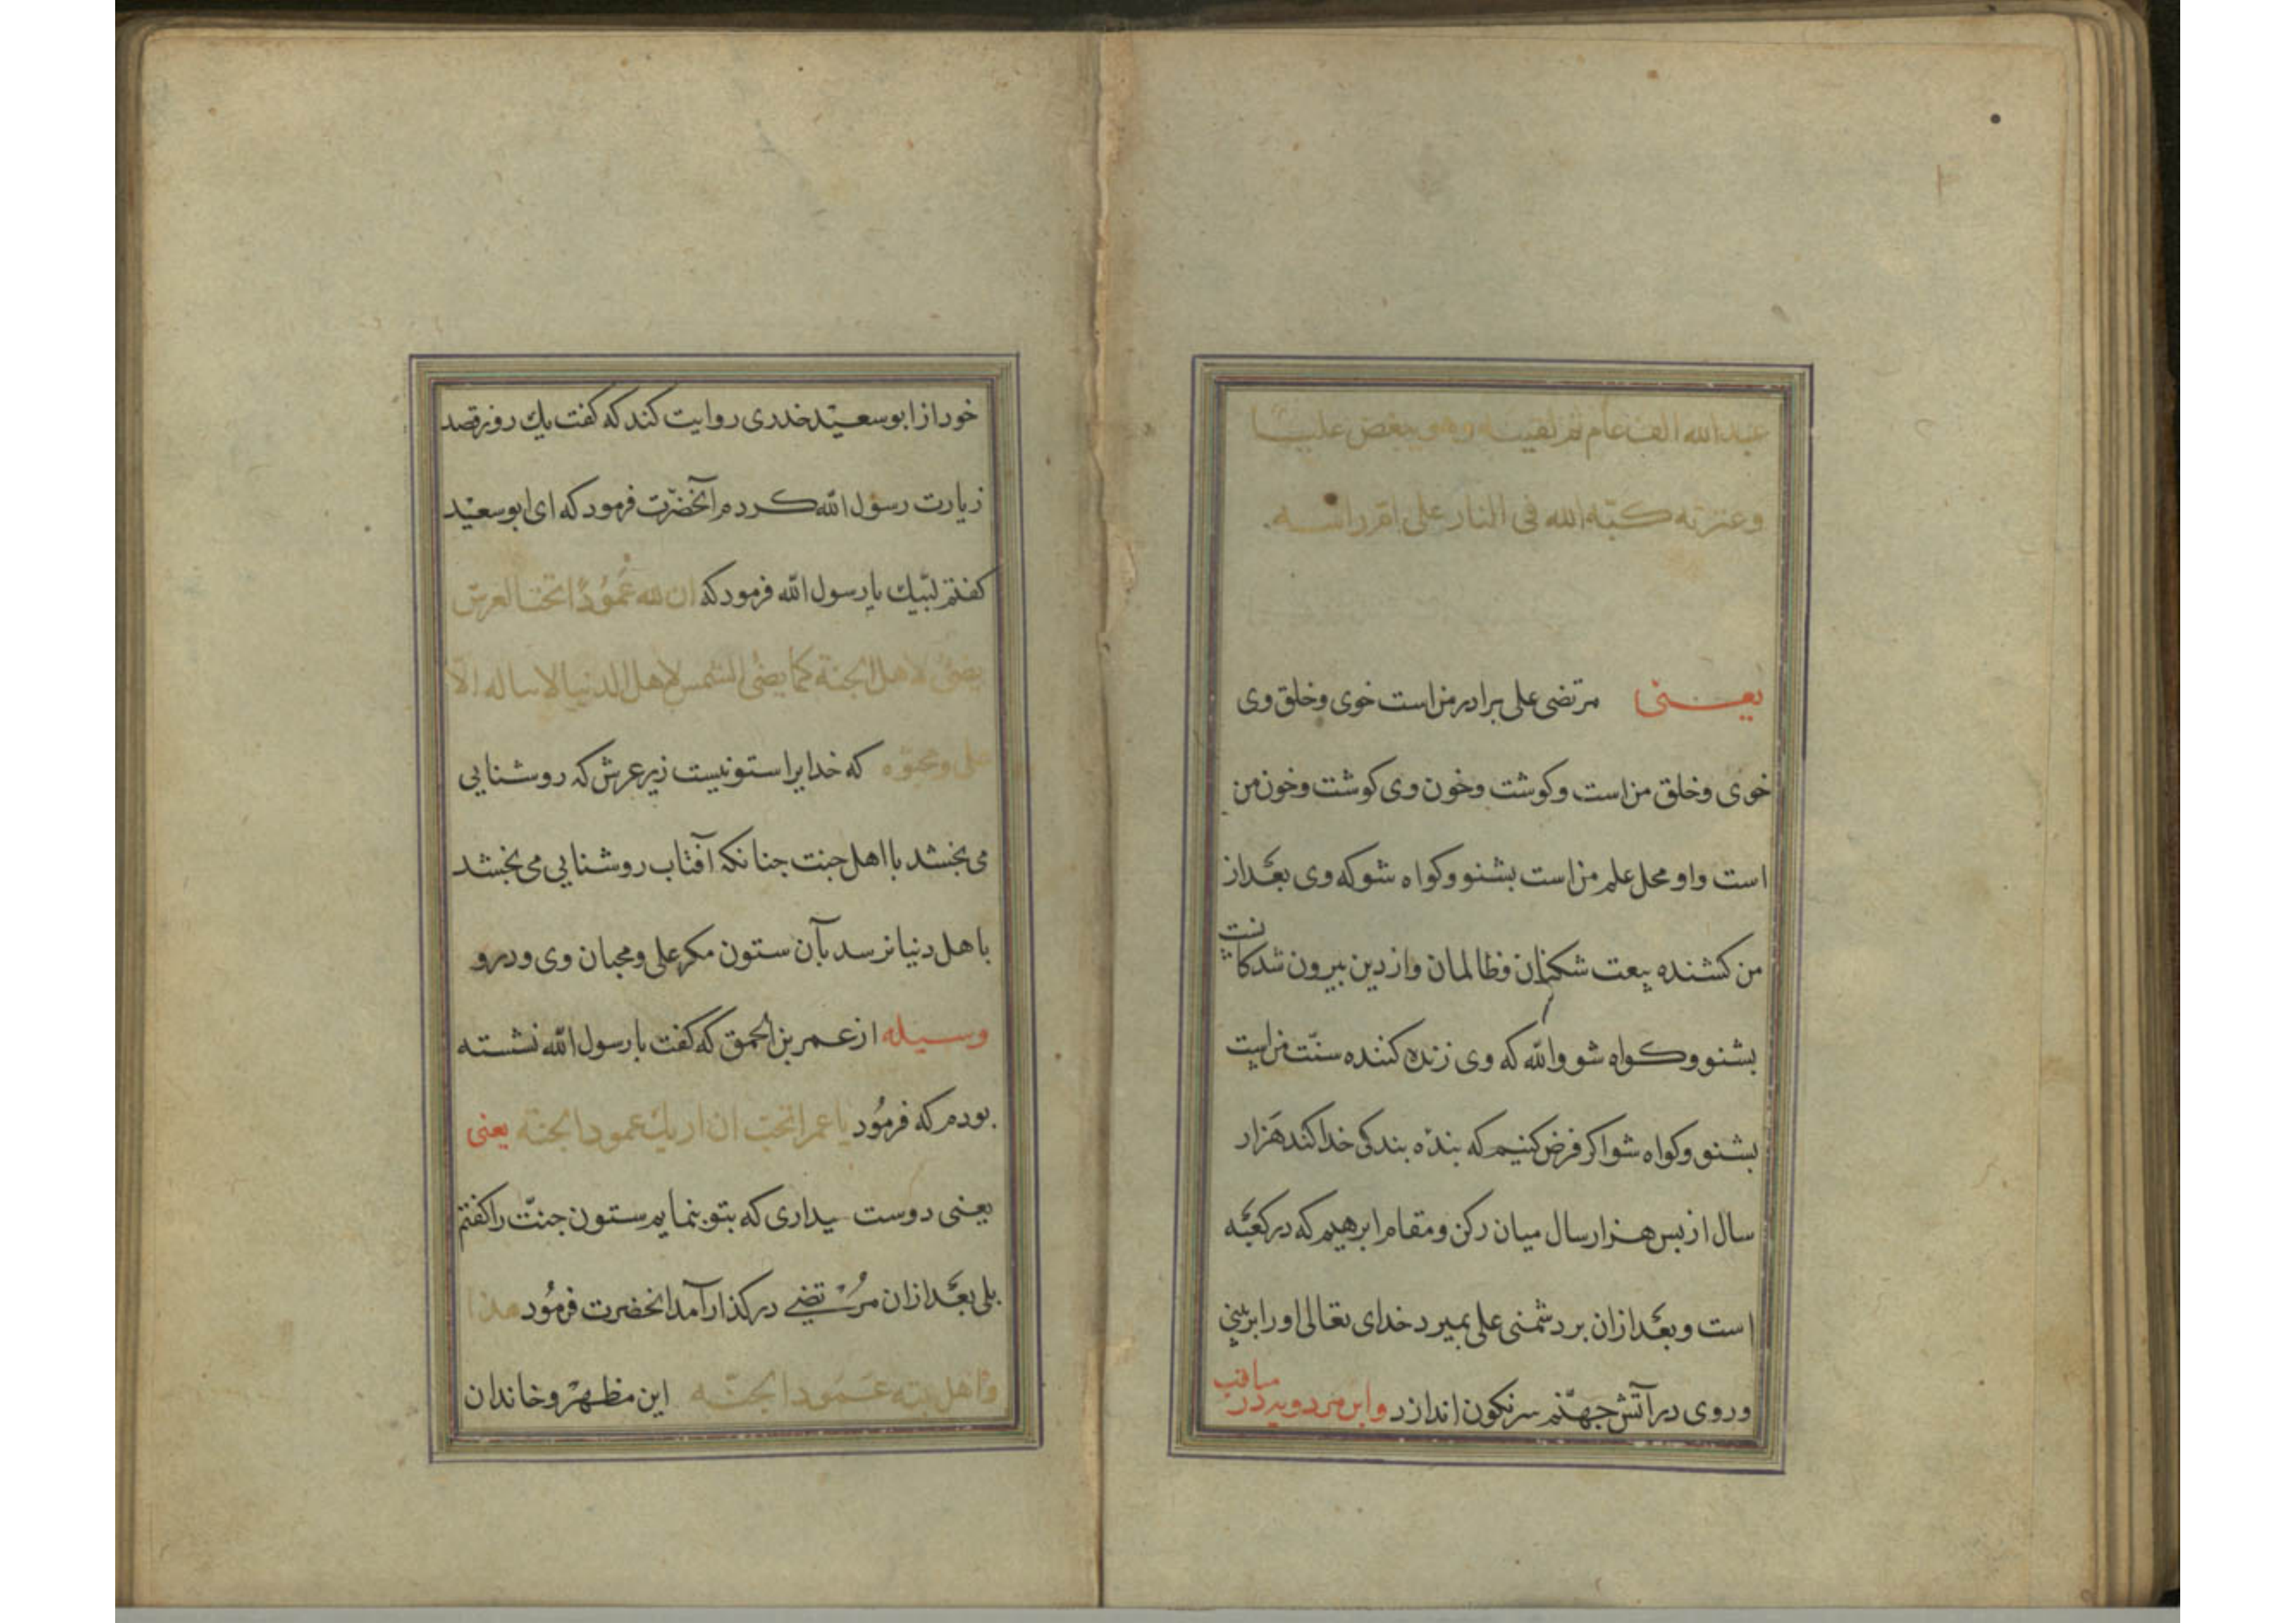 عبد الله الف عام ثم لقیه وهو یبغض علیا
وعترته کبّه الله فی النار علی ام راسه
یعنی مرتضی علی برادر من است خوی وخلق وی
خوی وخلق من است وکوشت وخون وی کوشت وخون من
است واو محل علم من است بشنو وکواه شو که وی بعد از
من کشنده بیعت شکنان وظالمان واز دین بیرون شدکانت
بشنو وکواه شو والله که وی زنده کننده سنّت من است
بشنو وکواه شو اکر فرض کنیم که بنده بندکی خدا کند هزار
سال از بس هزار سال میان رکن ومقام ابرهیم که در کعبه
است وبعد از ان بر دشمنی علی بمیرد خدای تعالی اورا بر بینی
وروی در آتش جهنّم سرنکون اندازد وابن مردویه در مناقب
خود از ابو سعید خدری روایت کند که کفت یك روز قصد
زیارت رسول الله کردم آنحضرت فرمود که ای ابو سعید
کفتم لبّیك یا رسول الله فرمود که ان لله عمودًا تحت العرش
یضئ لاهل الجنة کما یضئ الشمس لاهل الدنیا لا یناله الّا
علی ومحبّوه که خدایرا ستونیست زیر عرش که روشنایی
می بخشد با اهل جنت جنانکه آفتاب روشنایی می بخشد
باهل دنیا نرسد بآن ستون مکر علی ومحبان وی ودر و
وسیله از عمر بن الحمق که کفت با رسول الله نشسته
بودم که فرمُود یا عمر اتحب ان اریك عمود الجنّة یعنی
یعنی دوست میداری که بتو بنمایم ستون جنّت را کفتم
بلی بعد از ان مرتضی در کذار آمد انحضرت فرمُود هذا
واهل بیته عمود الجنّه این مظهر وخاندان